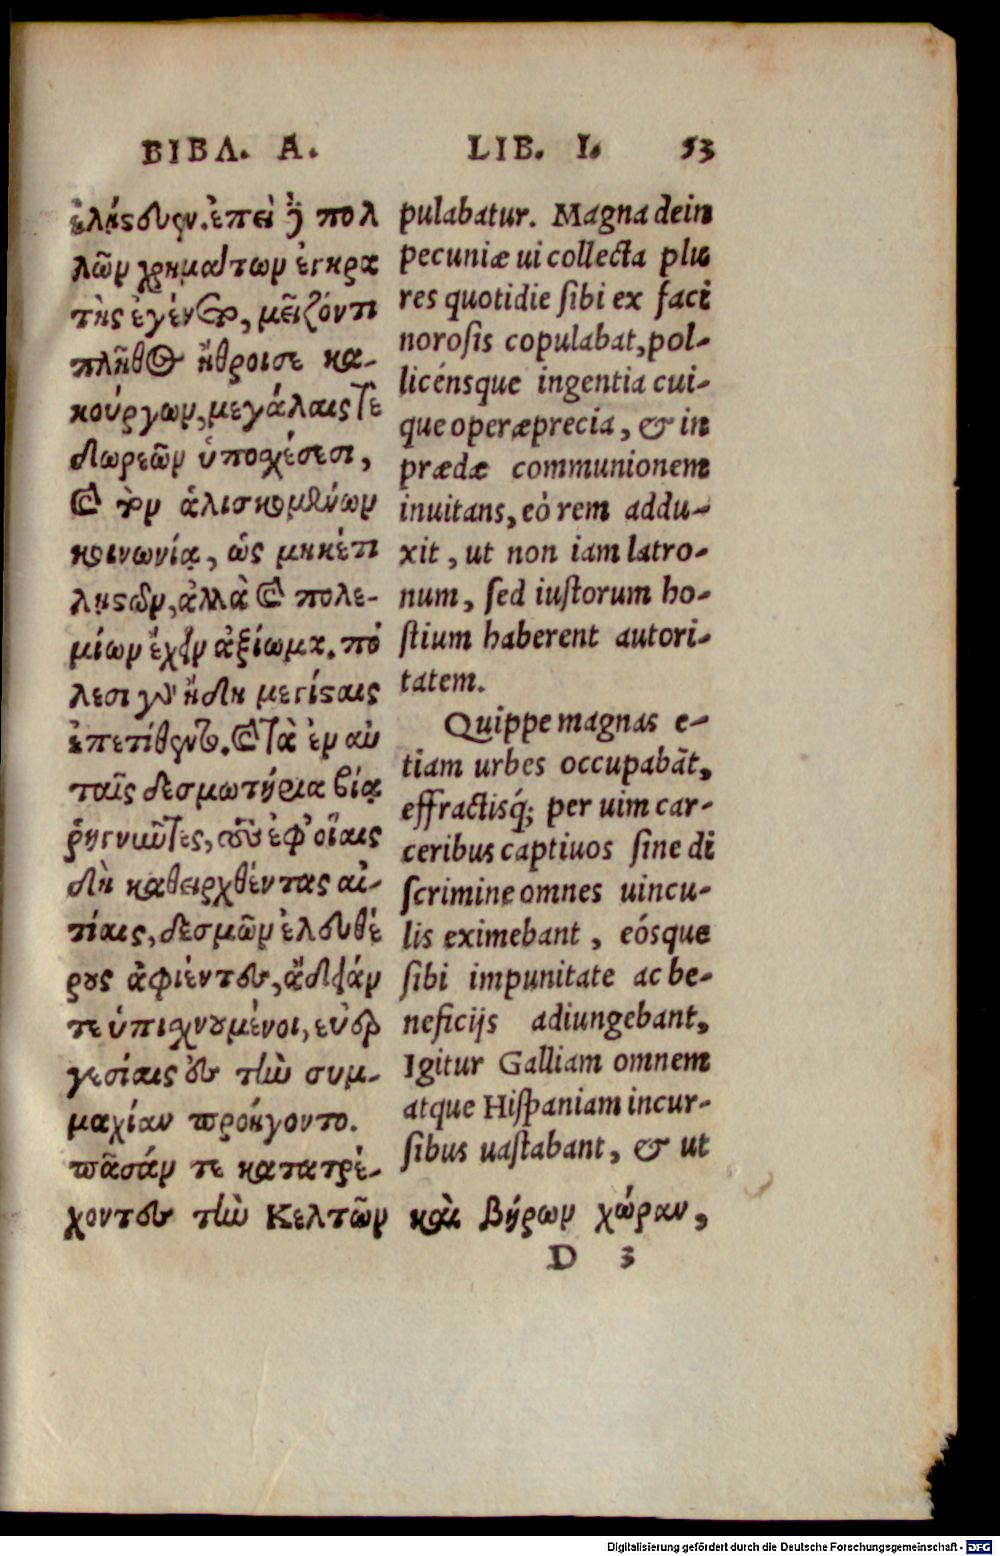 ΒΙΒΛ. Α.
ἐλῄστευον. ἐπεὶ δὲ πολ
λῶν χρημάτων ἐγκρα
τὴς ἐγένετο, μεῖζόν τι
πλῆθος ἤθροισε κα-
κούργων, μεγάλαις τε
δωρεῶν ὑποσχέσεσι,
καὶ τῶν ἁλισκομένων
κοινωνίᾳ, ὡς μηκέτι
λῃστῶν, ἀλλὰ καὶ πολε-
μίων ἔχειν ἀξίωμα. πό
λεσι γὰρ ἤδη μεγίσταις
ἐπετίθεντο. καὶ τὰ ἐν αὐ
ταῖς δεσμωτήρια βίᾳ
ῥηγνῦντες, τοὺς ἐφ' οἵαις
δὴ καθειρχθέντας αἰ-
τίαις, δεσμῶν ἐλευθέ
ρους ἀφιέντες, ἄδειάν
τε ὑπισχνούμενοι, εὐερ
γεσίαις ἐς τὴν συμ-
μαχίαν προήγοντο.
πᾶσάν τε κατατρέ-
χοντες τὴν Κελτῶν καὶ Βήρων χώραν,
LIB. I. 53
pulabatur. Magna dein
pecuniæ ui collecta plu
res quotidie sibi ex faci
norosis copulabat, pol-
licénsque ingentia cui-
que operæprecia, & in
prædæ communionem
inuitans, eò rem addu-
xit, ut non iam latro-
num, sed iustorum ho-
stium haberent autori-
tatem.
Quippe magnas e-
tiam urbes occupabāt,
effractisq́; per uim car-
ceribus captiuos sine di
scrimine omnes uincu-
lis eximebant, eósque
sibi impunitate ac be-
neficijs adiungebant,
Igitur Galliam omnem
atque Hispaniam incur-
sibus uastabant, & ut
D 3
Digitalisierung gefördert durch die Deutsche Forschungsgemeinschaft - DFG